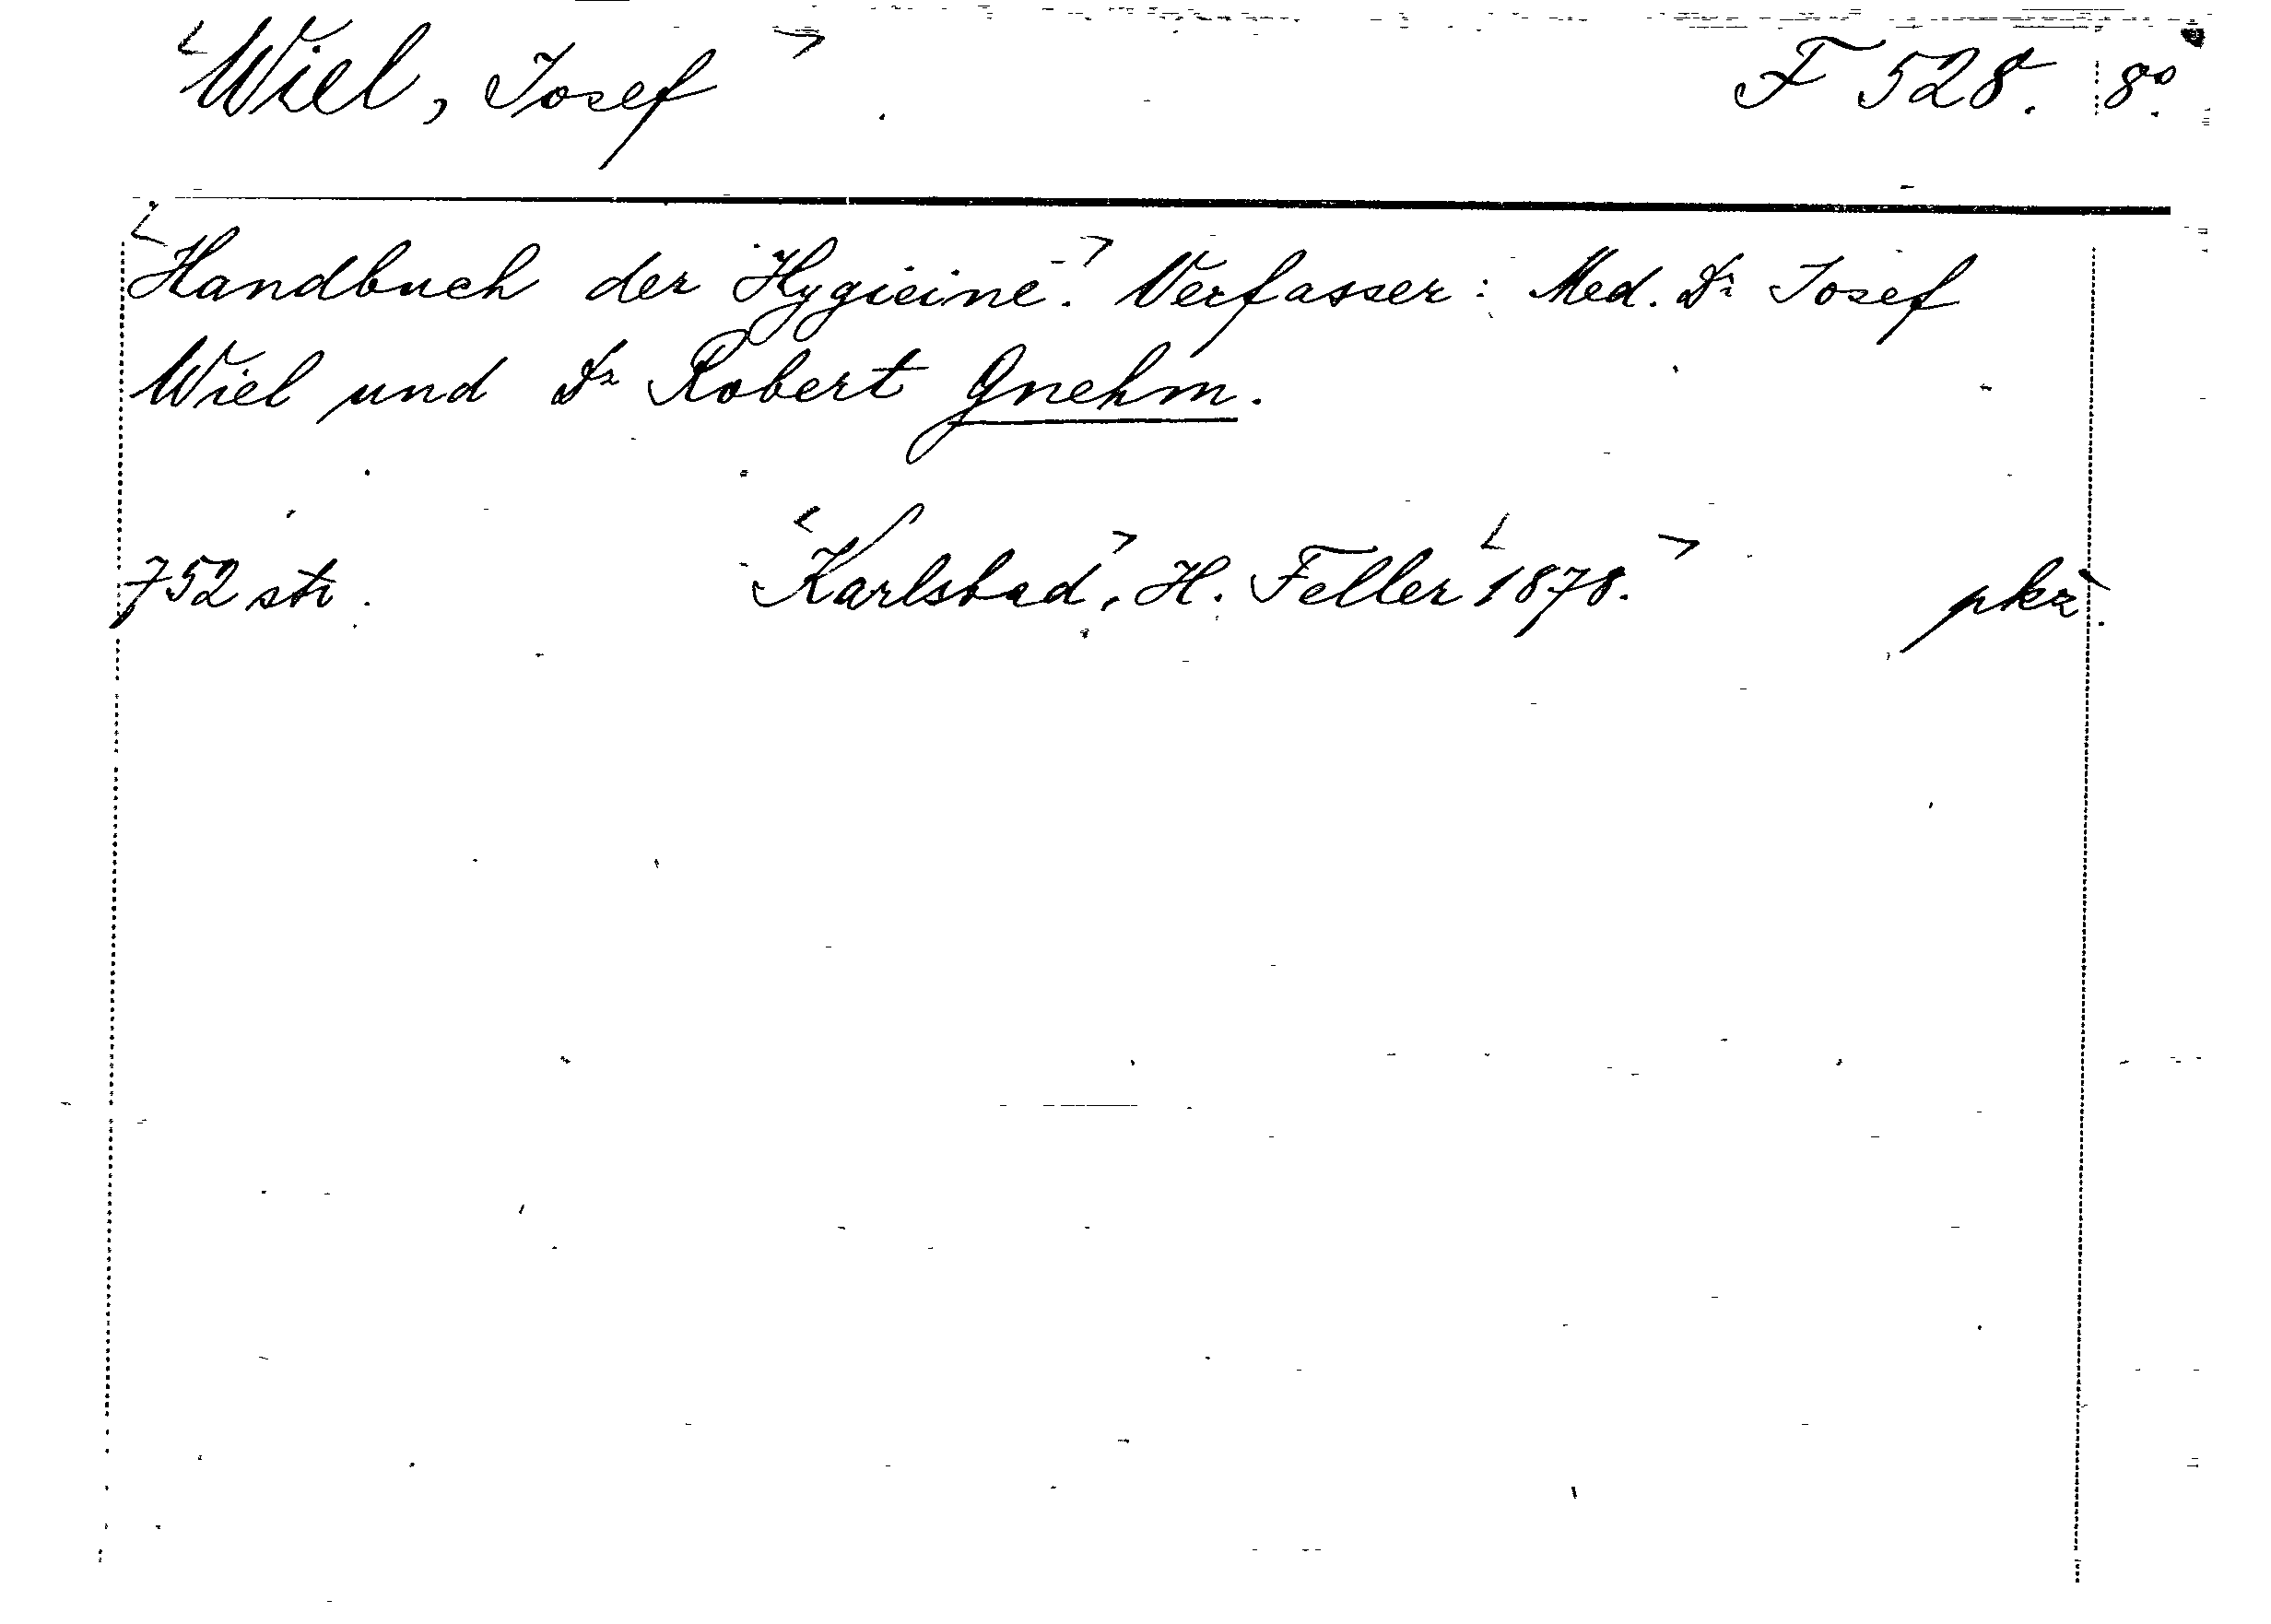 <Wiel, Josef> F 528. 8°.
<Handbuch der Hygieine.> Verfasser: Med. Dr Josef
Wiel und Dr Robert Gnehm.
752 str. <Karlsbad>, H. Feller <1878.> pkz.